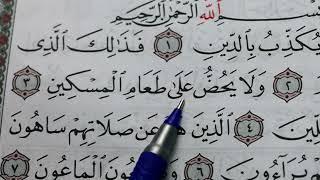 ـسْمِ ٱللَّهِ ٱلرَّحْمَٰنِ ٱلرَّحِيمِ
يُكَذِّبُ بِٱلدِّينِ ١ فَذَٰلِكَ ٱلَّذِى
٢ وَلَا يَحُضُّ عَلَىٰ طَعَامِ ٱلْمِسْكِينِ ٣
ـلِّينَ ٤ ٱلَّذِينَ هُمْ عَن صَلَاتِهِمْ سَاهُونَ
ـمْ يُرَآءُونَ ٦ ـعُونَ ٱلْمَاعُونَ ٧